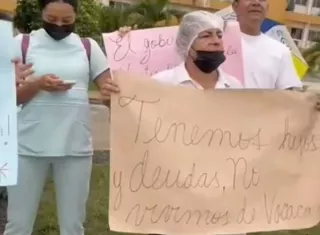 El gobi
Tenemos hijos
y deudas, No
vivimos de Vocaci